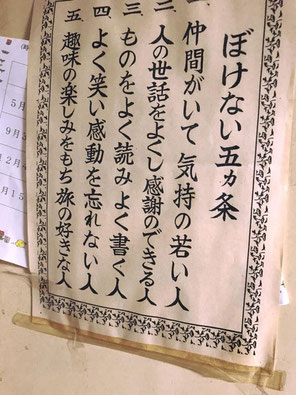 ぼけない五カ条
一、仲間がいて気持の若い人
二、人の世話をよくし感謝のできる人
三、ものをよく読みよく書く人
四、よく笑い感動を忘れない人
五、趣味の楽しみをもち旅の好きな人
5月
9月3
2月4
月15